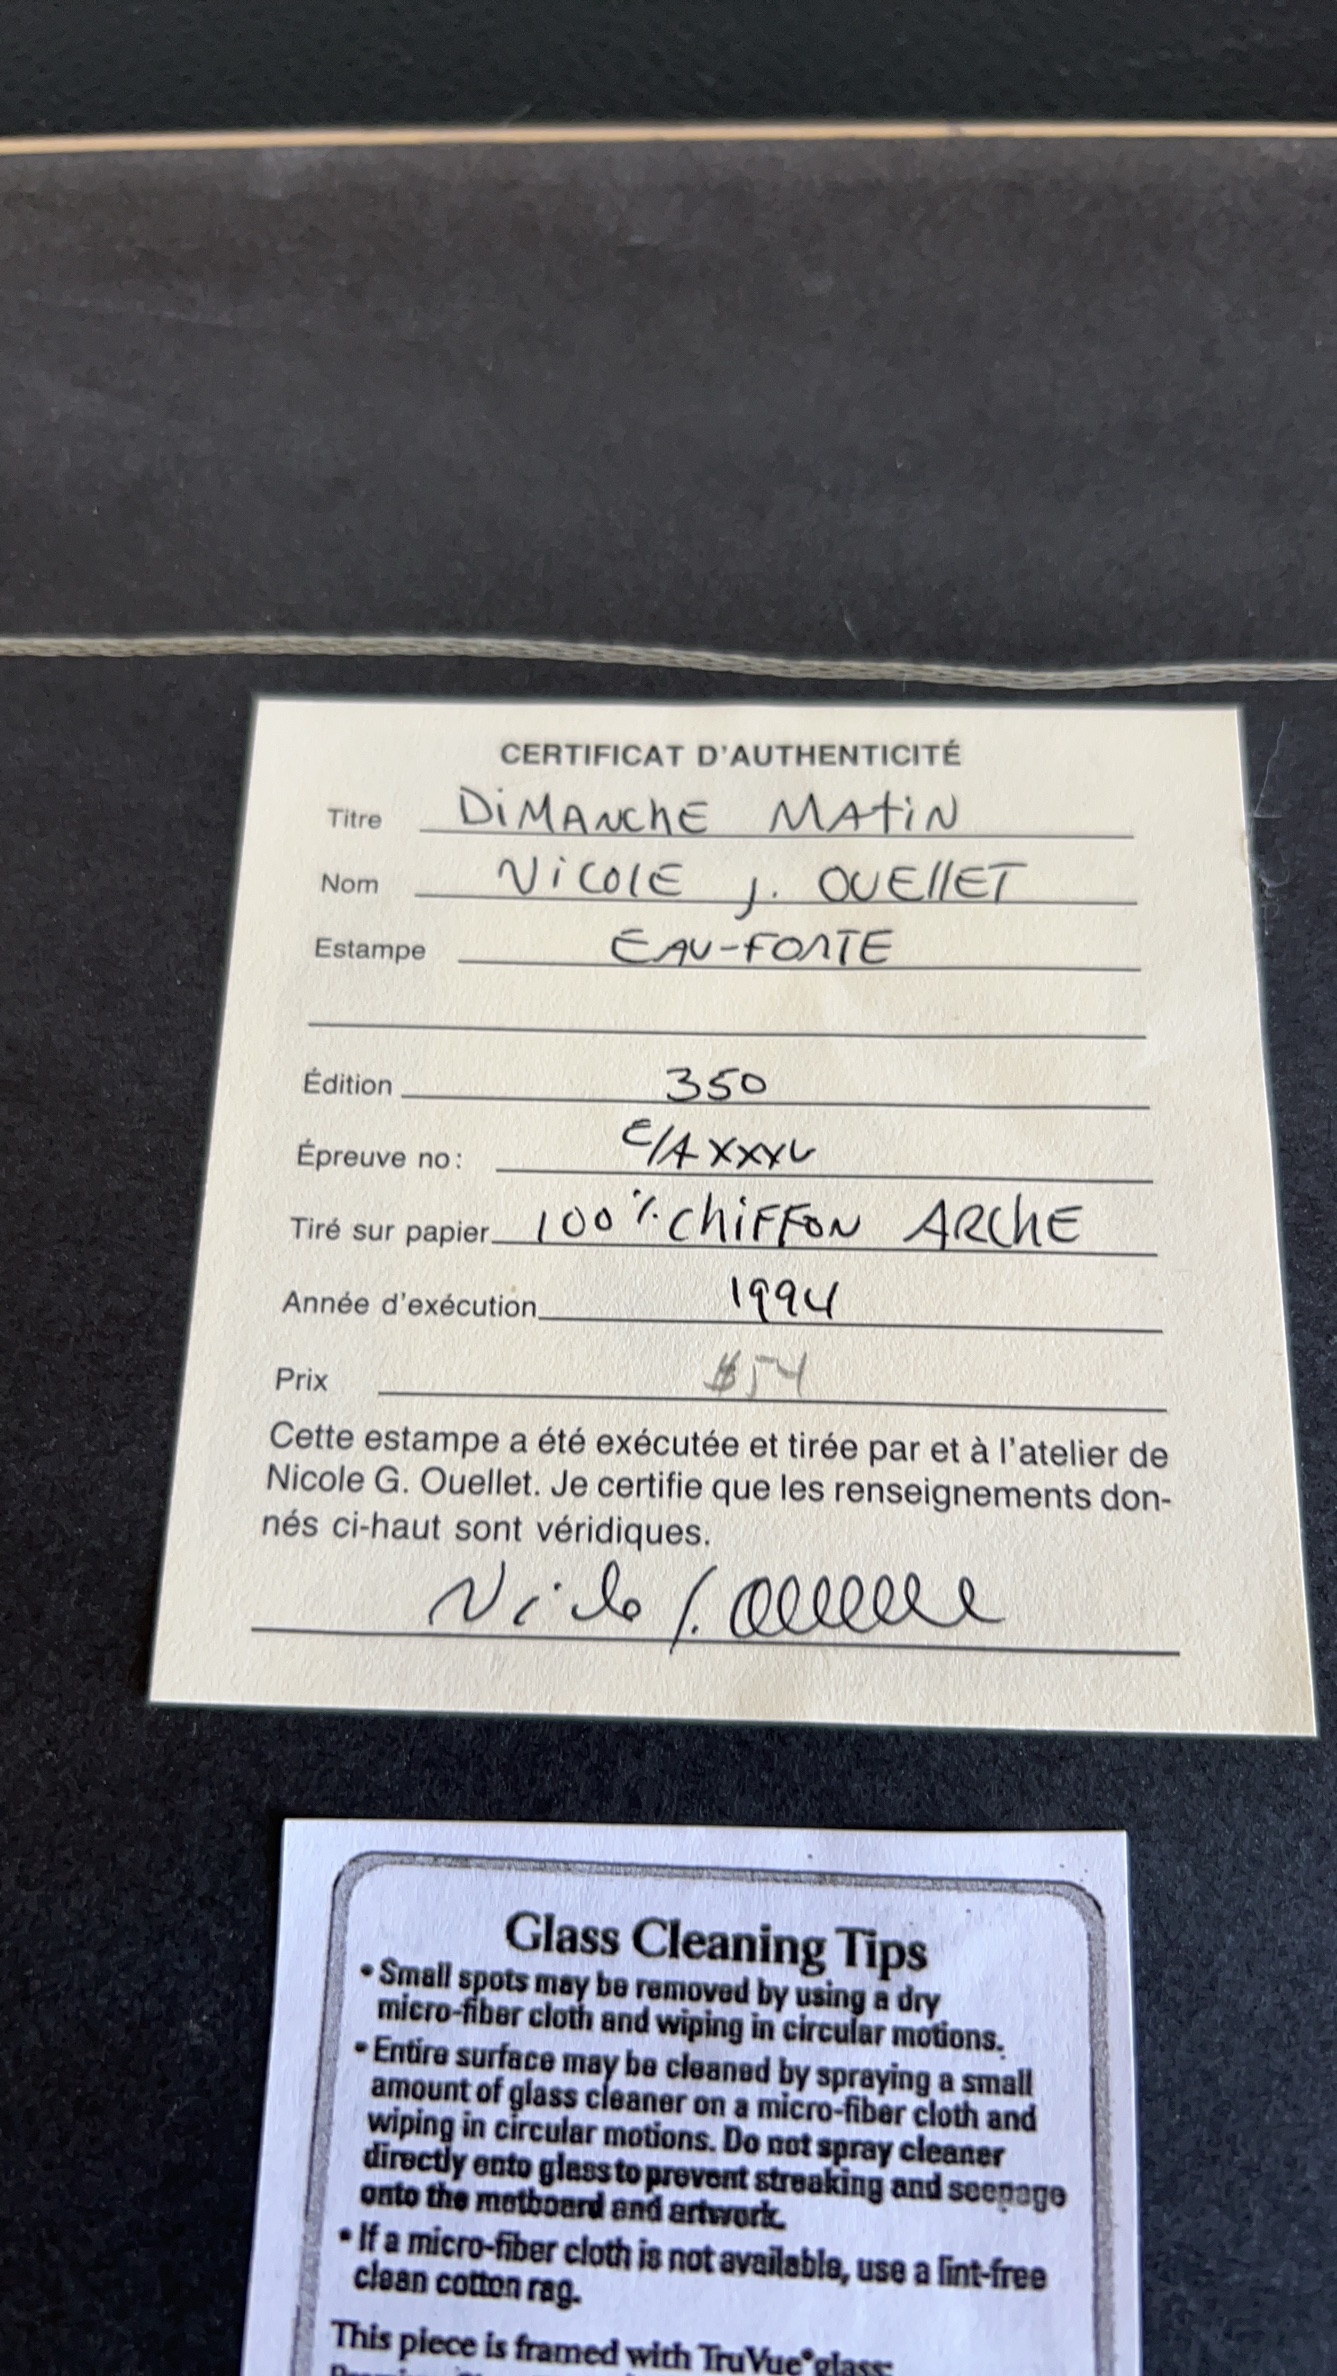 CERTIFICAT D'AUTHENTICITÉ
Titre DiMANChE MAtiN
Nom NiCOlE J. OUEllET
Estampe EAU-FORTE
Édition 350
Épreuve no: E/A XXXV
Tiré sur papier 100% ChiFFON ARChE
Année d'exécution 1994
Prix $54
Cette estampe a été exécutée et tirée par et à l'atelier de
Nicole G. Ouellet. Je certifie que les renseignements don-
nés ci-haut sont véridiques.
Nicole J. Ouellet
Glass Cleaning Tips
• Small spots may be removed by using a dry
micro-fiber cloth and wiping in circular motions.
• Entire surface may be cleaned by spraying a small
amount of glass cleaner on a micro-fiber cloth and
wiping in circular motions. Do not spray cleaner
directly onto glass to prevent streaking and seepage
onto the matboard and artwork.
• If a micro-fiber cloth is not available, use a lint-free
clean cotton rag.
This piece is framed with TruVue® glass